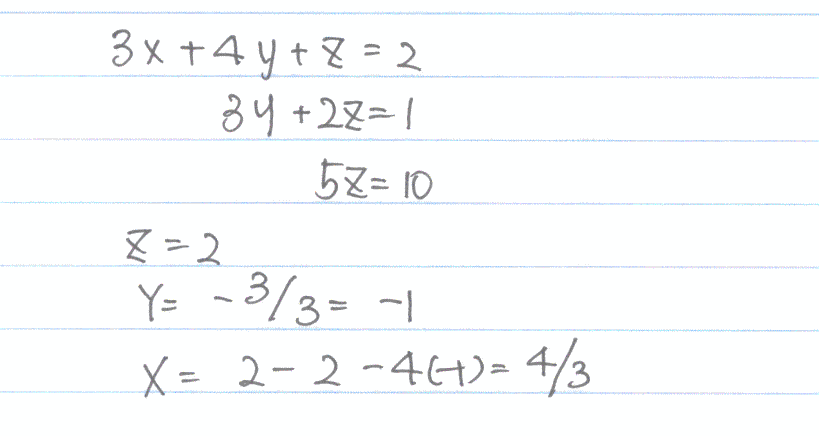 3x + 4y + z = 2
3y + 2z = 1
5z = 10
z = 2
Y = - 3/3 = -1
X = 2 - 2 - 4(-1) = 4/3